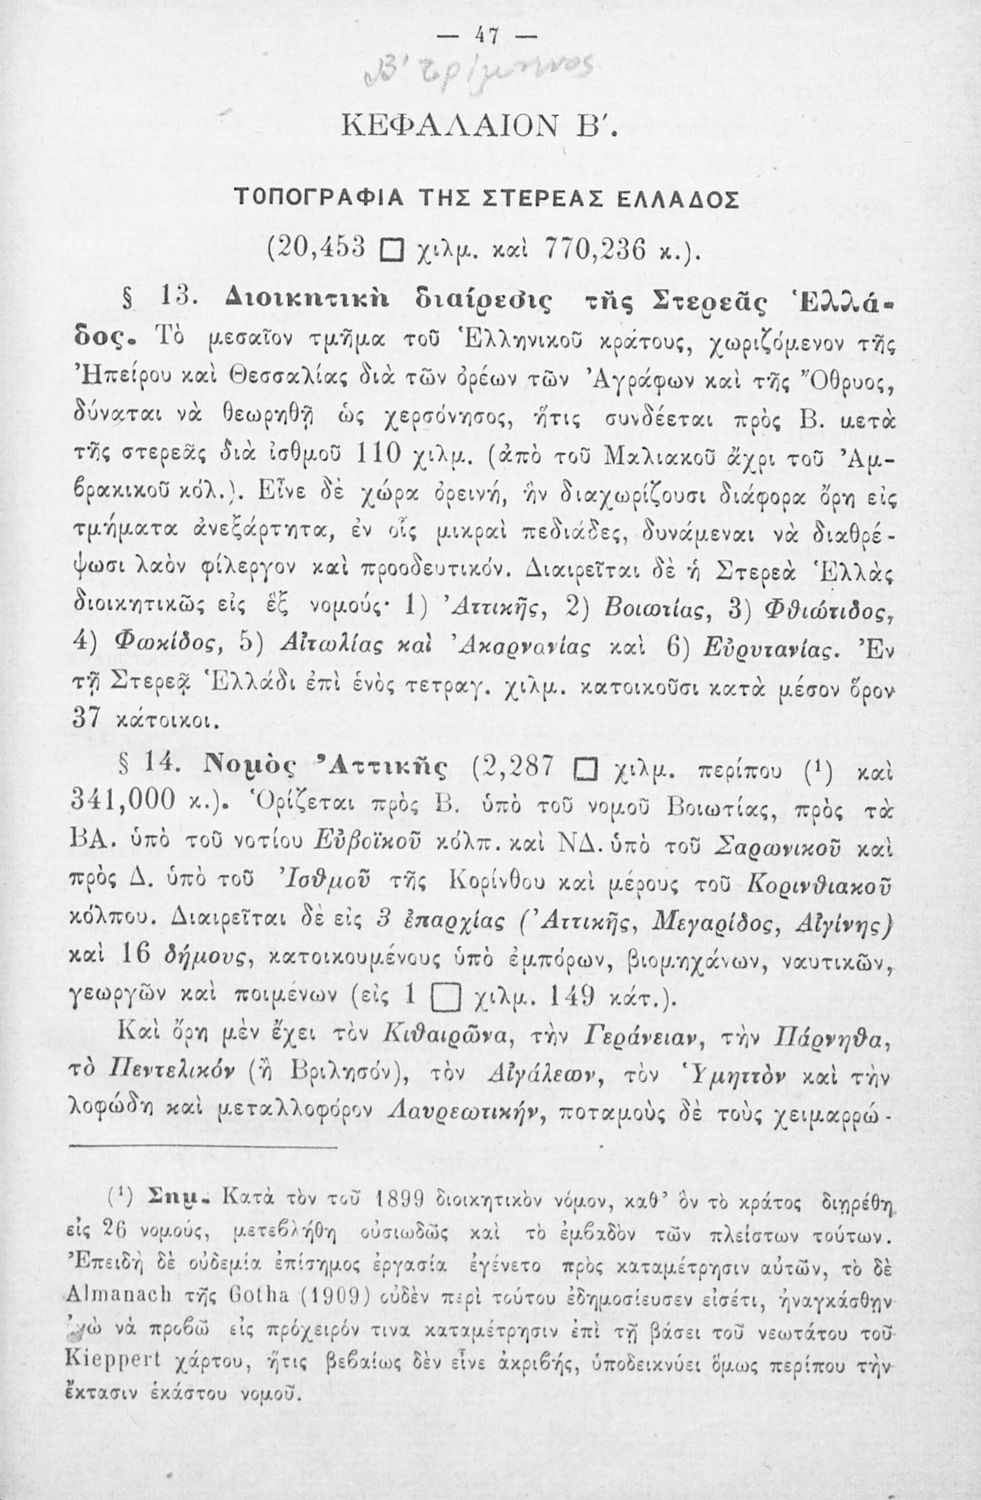 — 47 —
Β' τρίμηνος
ΚΕΦΑΛΑΙΟΝ Β'.
ΤΟΠΟΓΡΑΦΙΑ ΤΗΣ ΣΤΕΡΕΑΣ ΕΛΛΑΔΟΣ
(20,453 □ χιλμ. καὶ 770,236 κ.).
§ 13. Διοικητικὴ διαίρεσις τῆς Στερεᾶς Ἑλλά-
δος. Τὸ μεσαῖον τμῆμα τοῦ Ἑλληνικοῦ κράτους, χωριζόμενον τῆς
Ἠπείρου καὶ Θεσσαλίας διὰ τῶν ὀρέων τῶν Ἀγράφων καὶ τῆς Ὄθρυος,
δύναται νὰ θεωρηθῇ ὡς χερσόνησος, ἥτις συνδέεται πρὸς Β. μετὰ
τῆς στερεᾶς διὰ ἰσθμοῦ 110 χιλμ. (ἀπὸ τοῦ Μαλιακοῦ ἄχρι τοῦ Ἀμ-
βρακικοῦ κόλ.). Εἶνε δὲ χώρα ὀρεινή, ἣν διαχωρίζουσι διάφορα ὄρη εἰς
τμήματα ἀνεξάρτητα, ἐν οἷς μικραὶ πεδιάδες, δυνάμεναι νὰ διαθρέ-
ψωσι λαὸν φίλεργον καὶ προοδευτικόν. Διαιρεῖται δὲ ἡ Στερεὰ Ἑλλὰς
διοικητικῶς εἰς ἓξ νομούς· 1) Ἀττικῆς, 2) Βοιωτίας, 3) Φθιώτιδος,
4) Φωκίδος, 5) Αἰτωλίας καὶ Ἀκαρνανίας καὶ 6) Εὐρυτανίας. Ἐν
τῇ Στερεᾷ Ἑλλάδι ἐπὶ ἑνὸς τετραγ. χιλμ. κατοικοῦσι κατὰ μέσον ὅρον
37 κάτοικοι.
§ 14. Νομὸς Ἀττικῆς (2,287 □ χιλμ. περίπου (¹) καὶ
341,000 κ.). Ὁρίζεται πρὸς Β. ὑπὸ τοῦ νομοῦ Βοιωτίας, πρὸς τὰ
ΒΑ. ὑπὸ τοῦ νοτίου Εὐβοϊκοῦ κόλπ. καὶ ΝΔ. ὑπὸ τοῦ Σαρωνικοῦ καὶ
πρὸς Δ. ὑπὸ τοῦ Ἰσθμοῦ τῆς Κορίνθου καὶ μέρους τοῦ Κορινθιακοῦ
κόλπου. Διαιρεῖται δὲ εἰς 3 ἐπαρχίας (Ἀττικῆς, Μεγαρίδος, Αἰγίνης)
καὶ 16 δήμους, κατοικουμένους ὑπὸ ἐμπόρων, βιομηχάνων, ναυτικῶν,
γεωργῶν καὶ ποιμένων (εἰς 1 □ χιλμ. 149 κάτ.).
Καὶ ὄρη μὲν ἔχει τὸν Κιθαιρῶνα, τὴν Γεράνειαν, τὴν Πάρνηθα,
τὸ Πεντελικόν (ἢ Βριλησόν), τὸν Αἰγάλεων, τὸν Ὑμηττὸν καὶ τὴν
λοφώδη καὶ μεταλλοφόρον Λαυρεωτικήν, ποταμοὺς δὲ τοὺς χειμαρρώ-
(¹) Σημ. Κατὰ τὸν τοῦ 1899 διοικητικὸν νόμον, καθ' ὃν τὸ κράτος διῃρέθη
εἰς 26 νομούς, μετεβλήθη οὐσιωδῶς καὶ τὸ ἐμβαδὸν τῶν πλείστων τούτων.
Ἐπειδὴ δὲ οὐδεμία ἐπίσημος ἐργασία ἐγένετο πρὸς καταμέτρησιν αὐτῶν, τὸ δὲ
Almanach τῆς Gotha (1909) οὐδὲν περὶ τούτου ἐδημοσίευσεν εἰσέτι, ἠναγκάσθην
ἐγὼ νὰ προβῶ εἰς πρόχειρόν τινα καταμέτρησιν ἐπὶ τῇ βάσει τοῦ νεωτάτου τοῦ
Kieppert χάρτου, ἥτις βεβαίως δὲν εἶνε ἀκριβής, ὑποδεικνύει ὅμως περίπου τὴν
ἔκτασιν ἑκάστου νομοῦ.